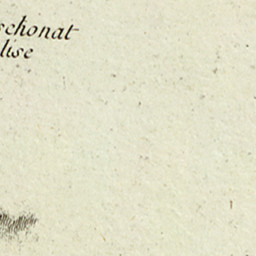 schonat
lise